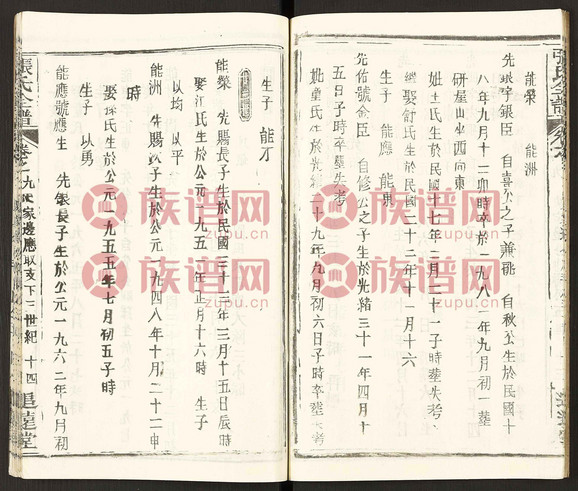 張氏合譜
能榮 能洲
先銀字銀臣 自喜公之子兼祧 自秋公生於民國十
八年九月十二卯時卒於一九八二年九月初一塟
研屋山坐西向東
姓王氏生於民國十七年二月二十一子時塟失考
繼娶舒氏生於民國二十二年十一月十六
生子 能應 能東
先佑號金臣 自修公之子生於光緒三十一年四月十
五日子時卒塟失考
妣童氏生於光緒二十九年九月初六日子時卒塟失考
生子 能才
能榮 先賜長子生於民國三十三年三月十五日辰時
娶江氏生於公元一九五 年正月十六時 生子
以均 以平
能洲 先賜 子生於公元一九四八年十月二十二申
時
娶 氏生於公元一九五五年七月初五子時
生子 以勇
能應號應生 先銀長子生於公元一九六二年九月初
張氏合譜 卷 九 家邊應 支下三世紀 十四 追遠堂
族谱网 zupu.cn
族谱网 zupu.cn
族谱网 zupu.cn
族谱网 zupu.cn